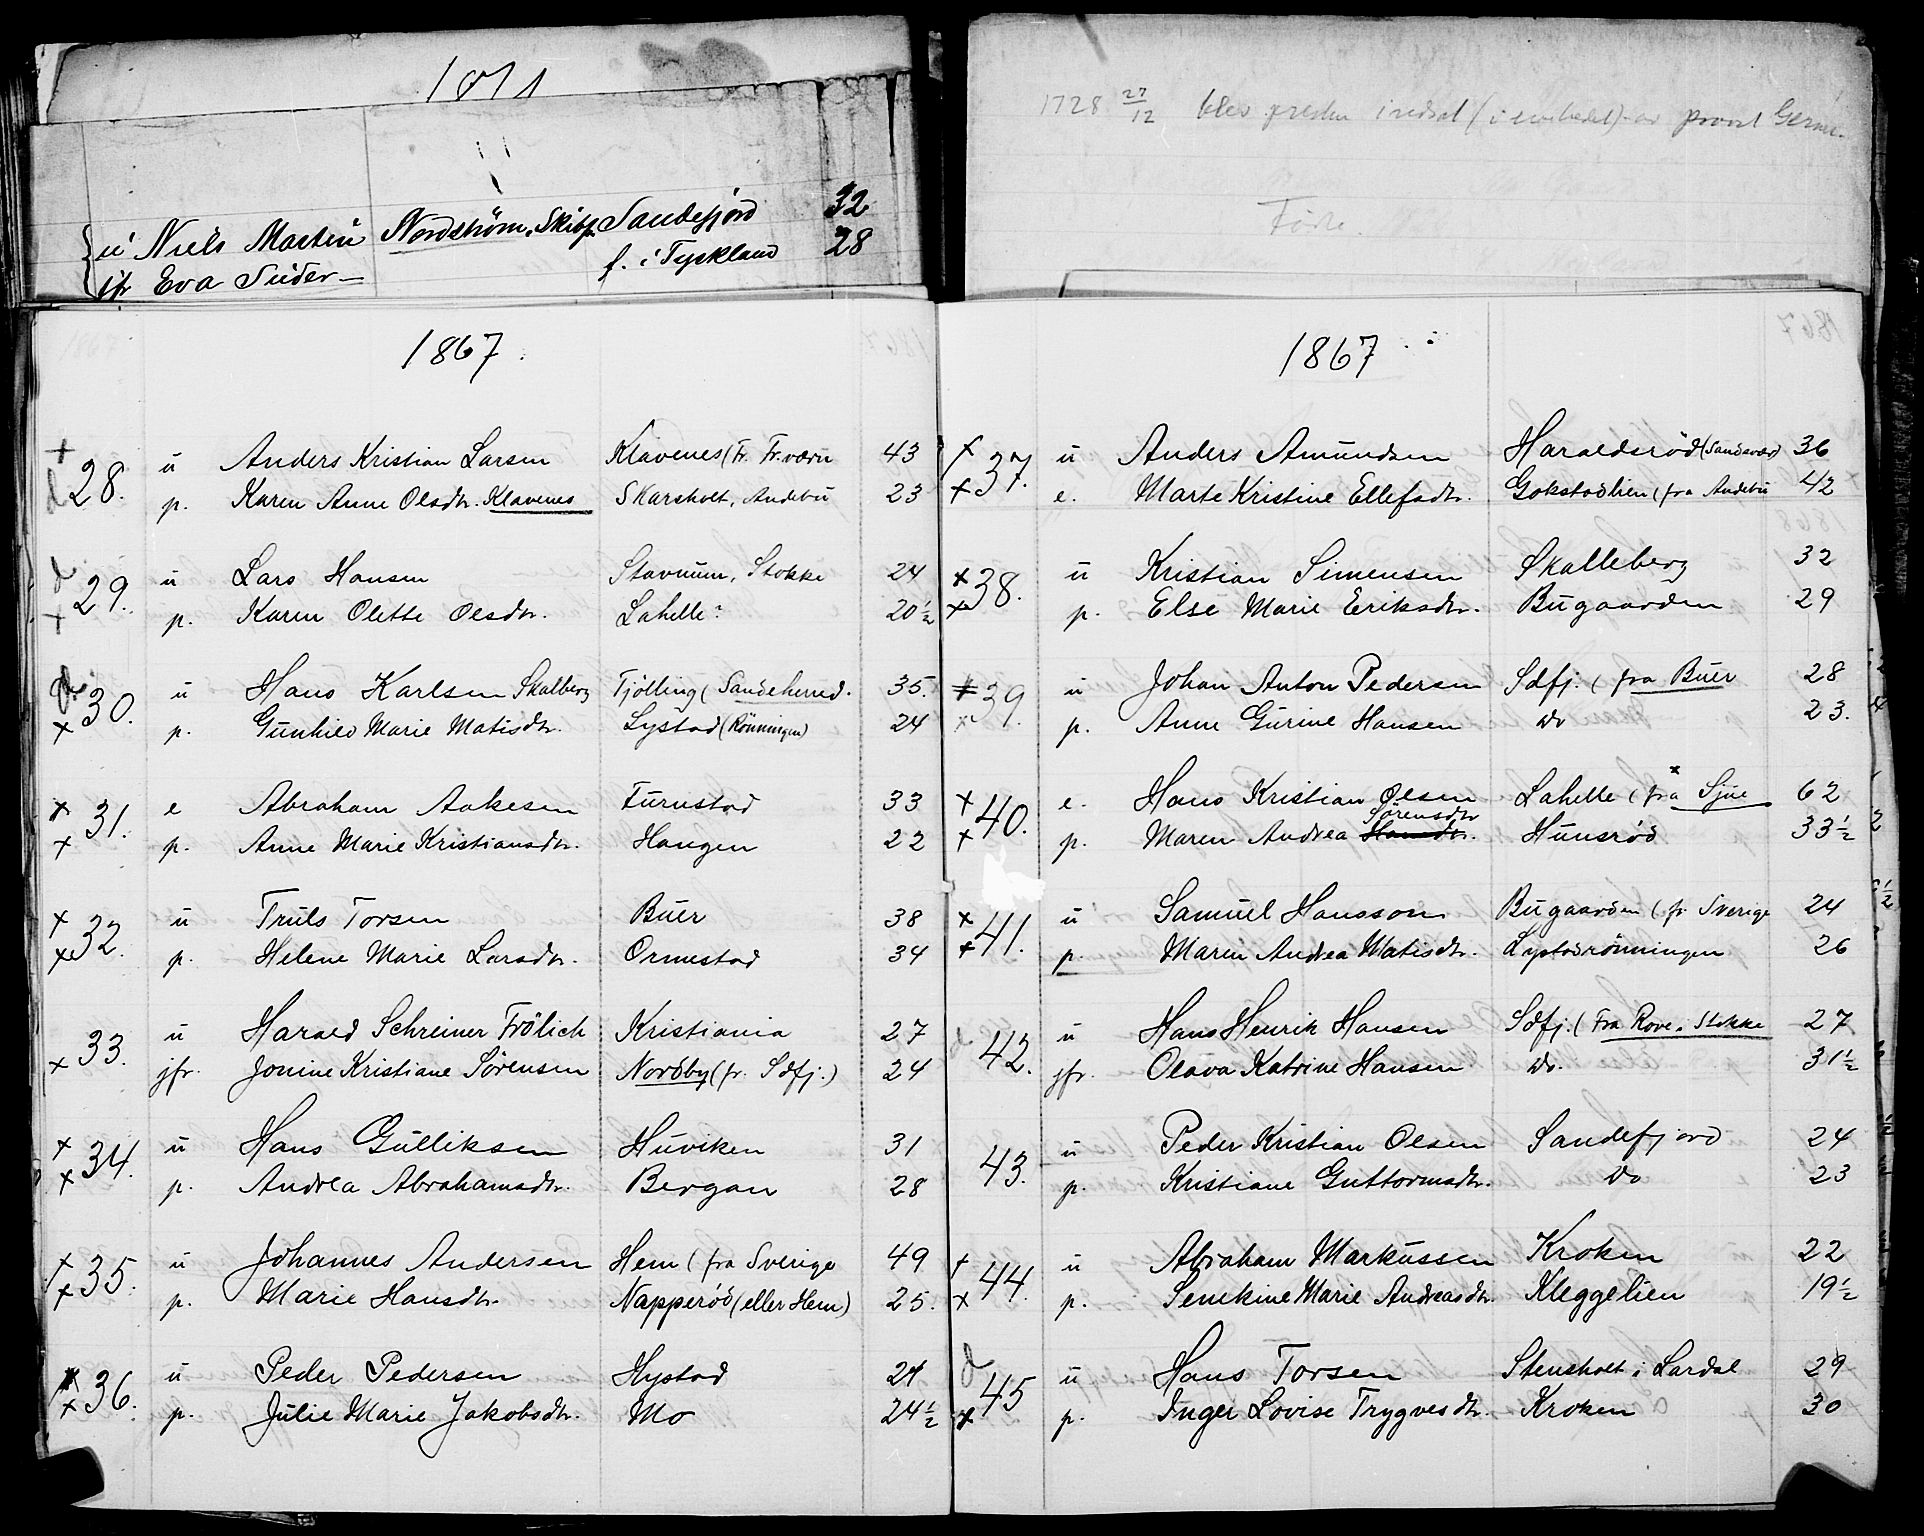 1871
{ u Niels Martin Nordström, Skibsf. Sandefjord 32
jfr Eva Suder — f. i Tyskland 28
1867.
+ d 28. u Anders Kristian Larsen Klavenes (fr. Fr.værn 43
p. Karen Anne Olsdtr. Klavenes Skarsholt, Andebu 23
d + 29. u Lars Hansen Stavnum, Stokke 24
p. Karen Olette Olsdtr. Lahelle? 20½
d. x 30. u Hans Karlsen Skalberg Tjölling (Sandeherred. 35.
p. Gunhild Marie Matisdtr. Lystad (Rönningen) 24
x x 31. e Abraham Aakesen Furustad 33
p. Anne Marie Kristiansdtr. Haugen 22
x x 32. u Truls Torsen Buer 38
p. Helene Marie Larsdtr. Ormestad 34
x 33. u Harald Schreiner Frölich Kristiania 27
jfr. Jonine Kristiane Sörensen Nordby (fr. Sdfj.) 24
x x 34. u Hans Gulliksen Huviken 31
p. Andrea Abrahamsdtr. Bergan 28
+ x 35. u Johannes Andersen Hem (fra Sverige 49
p. Marie Hansdtr. Napperöd (eller Hem) 25.
x x 36. u Peder Pedersen Hystad 21
p. Julie Marie Jakobsdtr. Mo 24½
1728 27/12 blev presten indsat (i embedet) av provst
Födte.
1867
+ x 37. u Anders Amundsen Haraldsröd (Sandsvær) 36
e. Marte Kristine Ellefsdtr. Gokstadlien (fra Andebu 42
x x 38. u Kristian Simensen Skalleberg 32
p. Else Marie Eriksdtr. Bugaarden 29
x x 39. u Johan Anton Pedersen Sdfj. (fra Buer 28
p. Anne Gurine Hansen do 23.
+ + 40. e. Hans Kristian Olsen Lahelle (fra x Sjue 62
p. Maren Andrea Hansdtr. Sörensdtr Hunsröd 33½
x + 41. u Samuel Hansson Bugaarden (fr Sverige 24
p. Maren Andrea Matisdtr. Lystadrönningen 26
42. u Hans Henrik Hansen Sdfj. (Fra Rove i Stokke 27
jfr. Olava Katrine Hansen do. 31½
43. u Peder Kristian Olsen Sandefjord 24
p. Kristiane Guttormsdtr. do 23
+ x 44. u Abraham Markussen Kroken 22
p. Senekine Marie Andreasdtr. Kleggelien 19½
d x 45 u Hans Torsen Stensholt i Lardal 29
p. Inger Lovise Trygvesdtr. Kroken 30